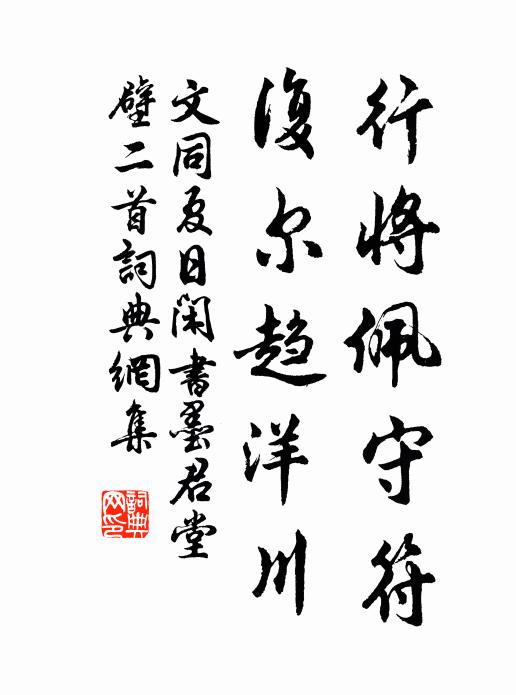 行将佩守符
復尔趋洋川
文同夏日闲書墨君堂
壁二首詞典網集
詞典网印